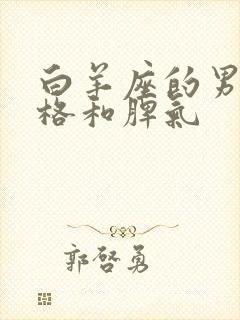 白羊座的男
格和脾氣
郭啓勇